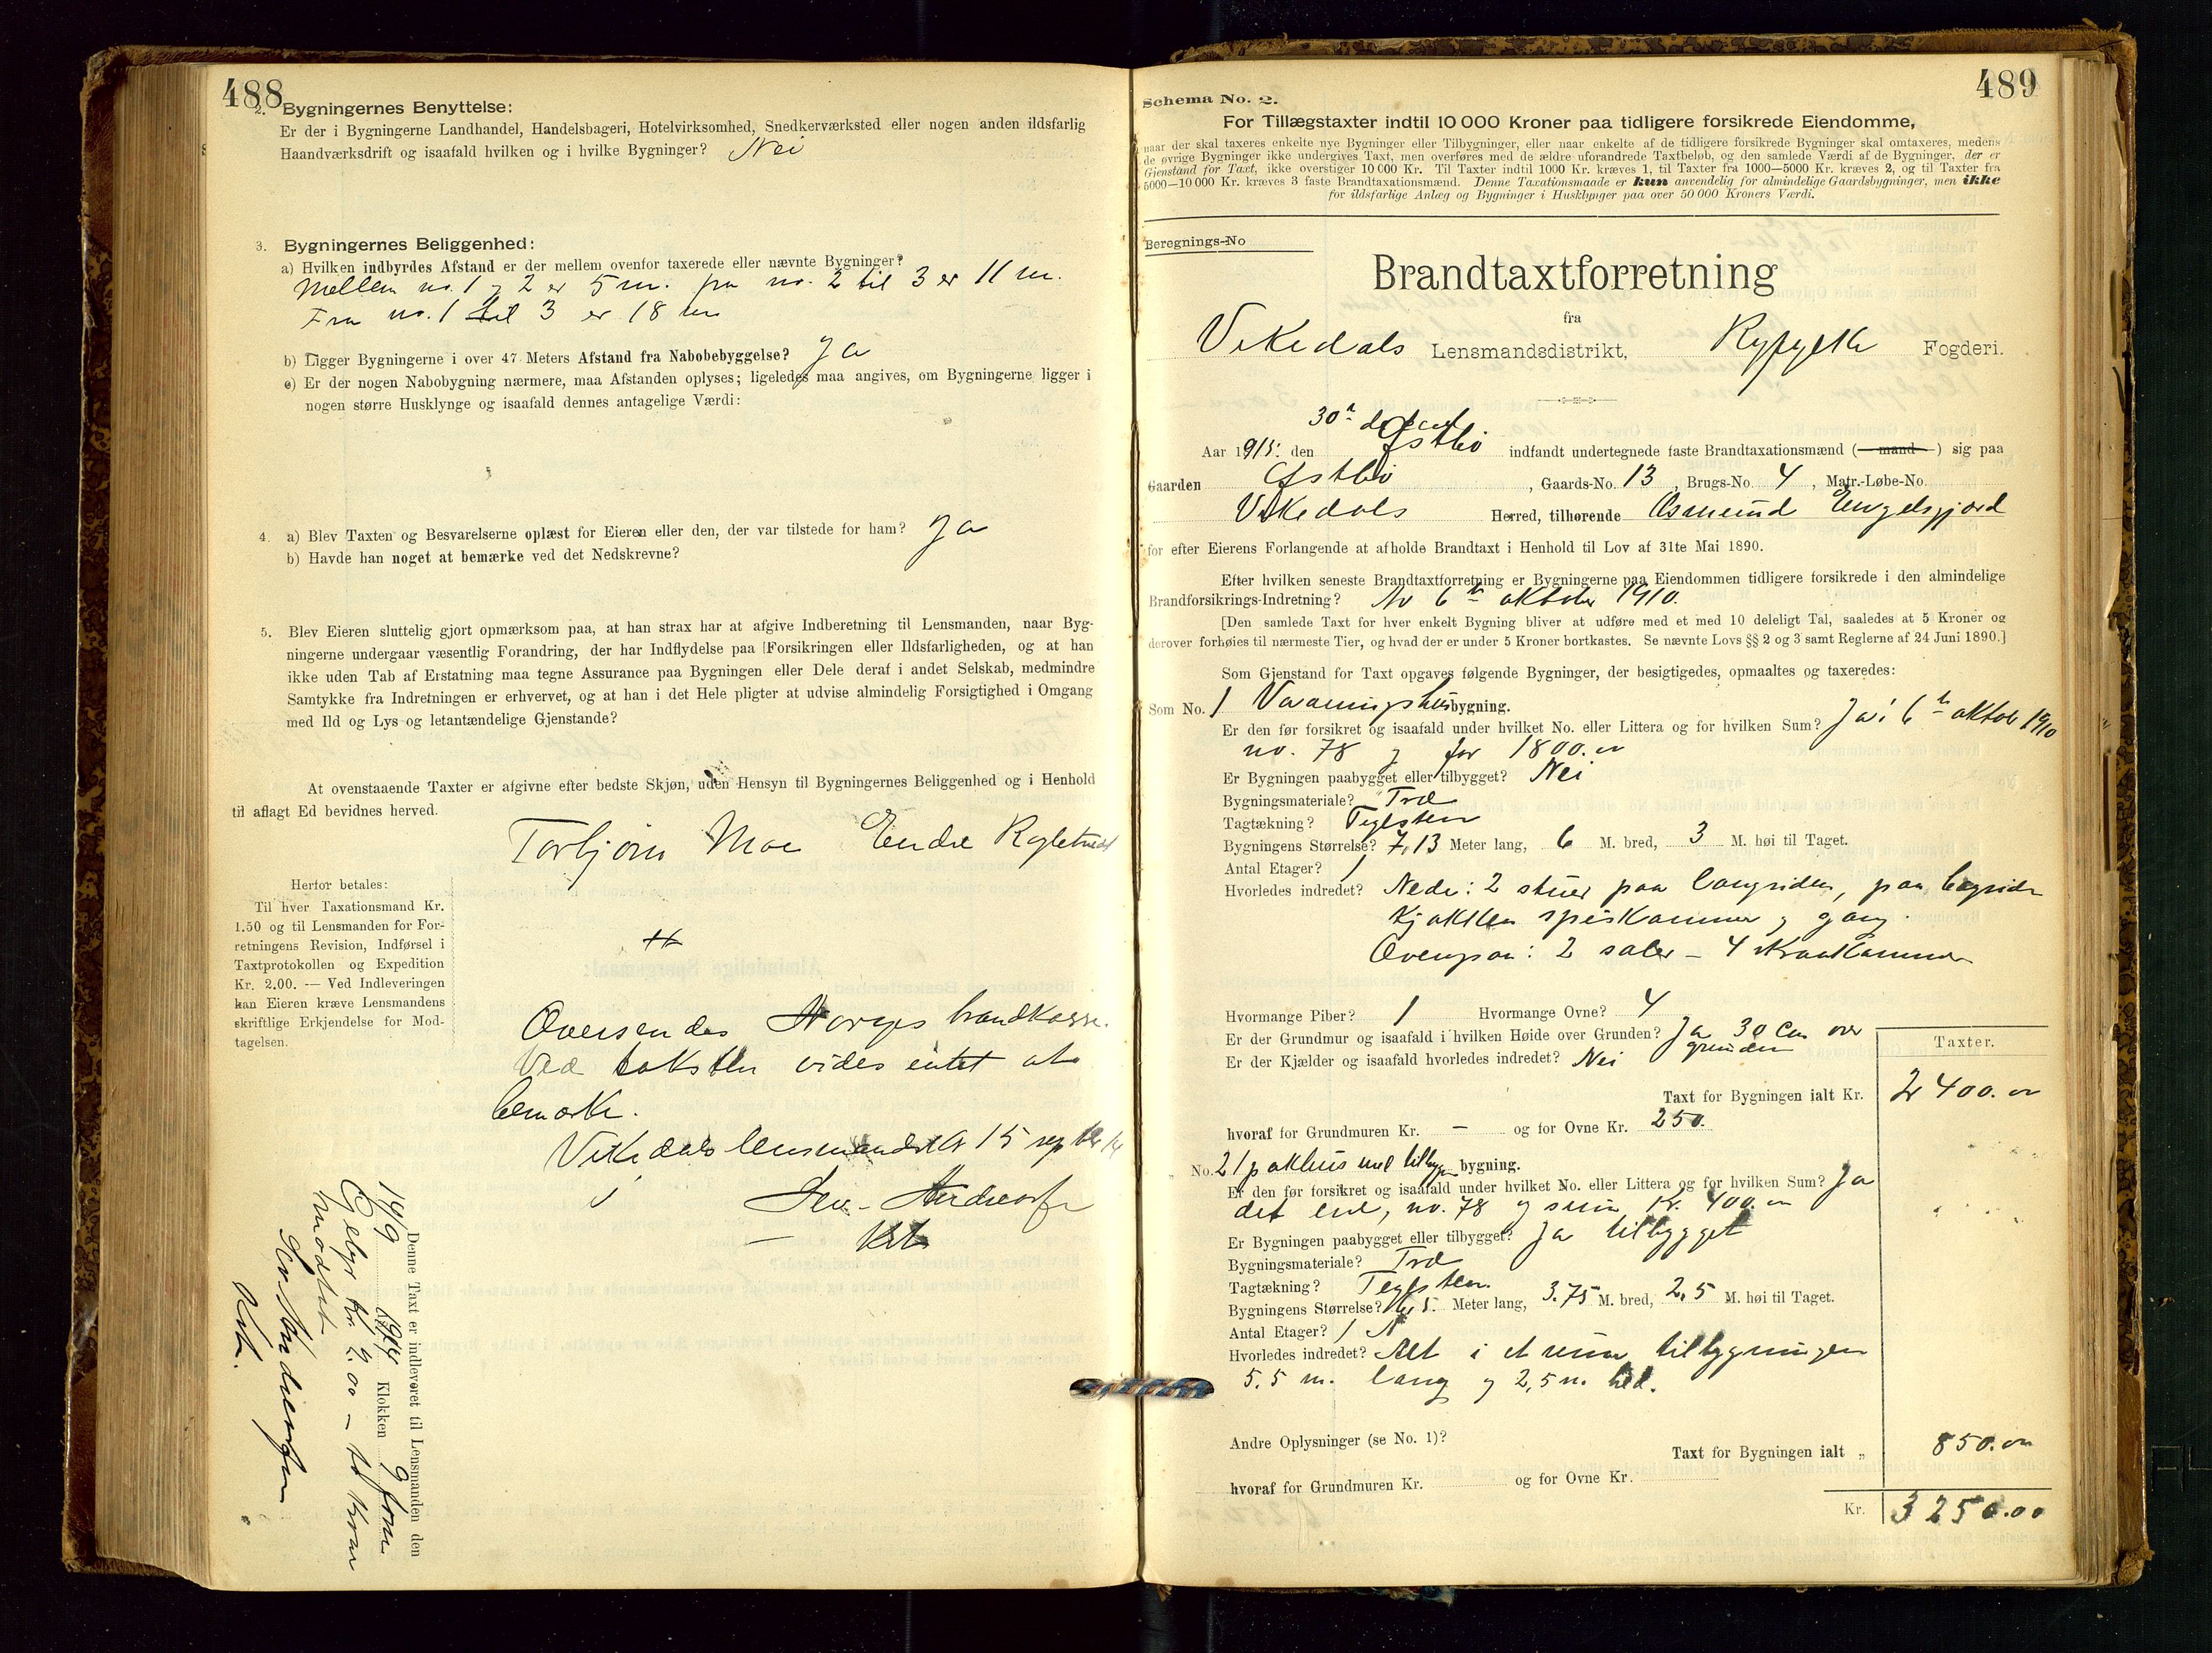 488
2. Bygningernes Benyttelse:
Er der i Bygningerne Landhandel, Handelsbageri, Hotelvirksomhed, Snedkerværksted eller nogen anden ildsfarlig
Haandværksdrift og isaafald hvilken og i hvilke Bygninger? Nei
3. Bygningernes Beliggenhed:
a) Hvilken indbyrdes Afstand er der mellem ovenfor taxerede eller nævnte Bygninger?
Mellem no. 1 og 2 er 5 m. fra no. 2 til 3 er 11 m.
Fra no. 1 til 3 er 18 m
b) Ligger Bygningerne i over 47 Meters Afstand fra Nabobebyggelse? Ja
c) Er der nogen Nabobygning nærmere, maa Afstanden oplyses; ligeledes maa angives, om Bygningerne ligger i
nogen større Husklynge og isaafald dennes antagelige Værdi:
4. a) Blev Taxten og Besvarelserne oplæst for Eieren eller den, der var tilstede for ham? Ja
b) Havde han noget at bemærke ved det Nedskrevne?
5. Blev Eieren sluttelig gjort opmærksom paa, at han strax har at afgive Indberetning til Lensmanden, naar Byg-
ningerne undergaar væsentlig Forandring, der har Indflydelse paa Forsikringen eller Ildsfarligheden, og at han
ikke uden Tab af Erstatning maa tegne Assurance paa Bygningen eller Dele deraf i andet Selskab, medmindre
Samtykke fra Indretningen er erhvervet, og at han i det Hele pligter at udvise almindelig Forsigtighed i Omgang
med Ild og Lys og letantændelige Gjenstande?
At ovenstaaende Taxter er afgivne efter bedste Skjøn, uden Hensyn til Bygningernes Beliggenhed og i Henhold
til aflagt Ed bevidnes herved.
Torbjørn Moe Endre
Herfor betales:
Til hver Taxationsmand Kr.
1.50 og til Lensmanden for For-
retningens Revision, Indførsel i
Taxtprotokollen og Expedition
Kr. 2.00. — Ved Indleveringen
kan Eieren kræve Lensmandens
skriftlige Erkjendelse for Mod-
tagelsen.
Oversendes Norges brandkasse.
Ved taksten vides intet at
bemærke.
Vikedals lensmandsk 15 sept
Denne Taxt er indleveret til Lensmanden den
14/9 1914 Klokken 9 form
Gebyr kr. 2.00 – to kroner
modtat
489
Schema No. 2.
For Tillægstaxter indtil 10 000 Kroner paa tidligere forsikrede Eiendomme,
naar der skal taxeres enkelte nye Bygninger eller Tilbygninger, eller naar enkelte af de tidligere forsikrede Bygninger skal omtaxeres, medens
de øvrige Bygninger ikke undergives Taxt, men overføres med de ældre uforandrede Taxtbeløb, og den samlede Værdi af de Bygninger, der er
Gjenstand for Taxt, ikke overstiger 10 000 Kr. Til Taxter indtil 1000 Kr. kræves 1, til Taxter fra 1000—5000 Kr. kræves 2, og til Taxter fra
5000—10 000 Kr. kræves 3 faste Brandtaxationsmænd. Denne Taxationsmaade er kun anvendelig for almindelige Gaardsbygninger, men ikke
for ildsfarlige Anlæg og Bygninger i Husklynger paa over 50 000 Kroners Værdi.
Beregnings-No
Brandtaxtforretning
fra
Vikedals Lensmandsdistrikt, Ryfylke Fogderi.
Aar 1915. den 30te indfandt undertegnede faste Brandtaxationsmænd (mand) sig paa
Gaarden Østbø, Gaards-No. 13, Brugs-No. 4, Matr.-Løbe-No.
Vikedals Herred, tilhørende Osmund Engelsgjerd
for efter Eierens Forlangende at afholde Brandtaxt i Henhold til Lov af 31te Mai 1890.
Efter hvilken seneste Brandtaxtforretning er Bygningerne paa Eiendommen tidligere forsikrede i den almindelige
Brandforsikrings-Indretning? Av 6te oktober 1910.
[Den samlede Taxt for hver enkelt Bygning bliver at udføre med et med 10 deleligt Tal, saaledes at 5 Kroner og
derover forhøies til nærmeste Tier, og hvad der er under 5 Kroner bortkastes. Se nævnte Lovs §§ 2 og 3 samt Reglerne af 24 Juni 1890.]
Som Gjenstand for Taxt opgaves følgende Bygninger, der besigtigedes, opmaaltes og taxeredes:
Som No. 1 Vaaningshusbygning.
Er den før forsikret og isaafald under hvilket No. eller Littera og for hvilken Sum? Ja i 6te oktob 1910
no. 78 og for 1800.00
Er Bygningen paabygget eller tilbygget? Nei
Bygningsmateriale? Træ
Tagtækning? Teglsten
Bygningens Størrelse? 7,13 Meter lang, 6 M. bred, 3 M. høi til Taget.
Antal Etager? 1
Hvorledes indredet? Nede: 2 stuer paa langsiden, paa bagside
kjøkken spiskammer og gang.
Ovenpaa: 2 saler – 4 kammer
Hvormange Piber? 1 Hvormange Ovne? 4
Er der Grundmur og isaafald i hvilken Høide over Grunden? Ja 30 Cm over grunden
Er der Kjælder og isaafald hvorledes indredet? Nei
Taxter.
Taxt for Bygningen ialt Kr. 2400.00
hvoraf for Grundmuren Kr. – og for Ovne Kr. 250.
No. 2 1 pakhus med tilbygn bygning.
Er den før forsikret og isaafald under hvilket No. eller Littera og for hvilken Sum? Ja
det ene, no. 78 og sum kr. 400.00
Er Bygningen paabygget eller tilbygget? Ja tilbygget
Bygningsmateriale? Træ
Tagtækning? Teglsten.
Bygningens Størrelse? Meter lang, 3.75 M. bred, 2,5 M. høi til Taget.
Antal Etager? 1
Hvorledes indredet? Alt i et rum tilbygningen
5.5 m. lang og 2,5 m. bred.
Andre Oplysninger (se No. 1)?
Taxt for Bygningen ialt „ 850.00
hvoraf for Grundmuren Kr. og for Ovne Kr.
Kr. 3250.00